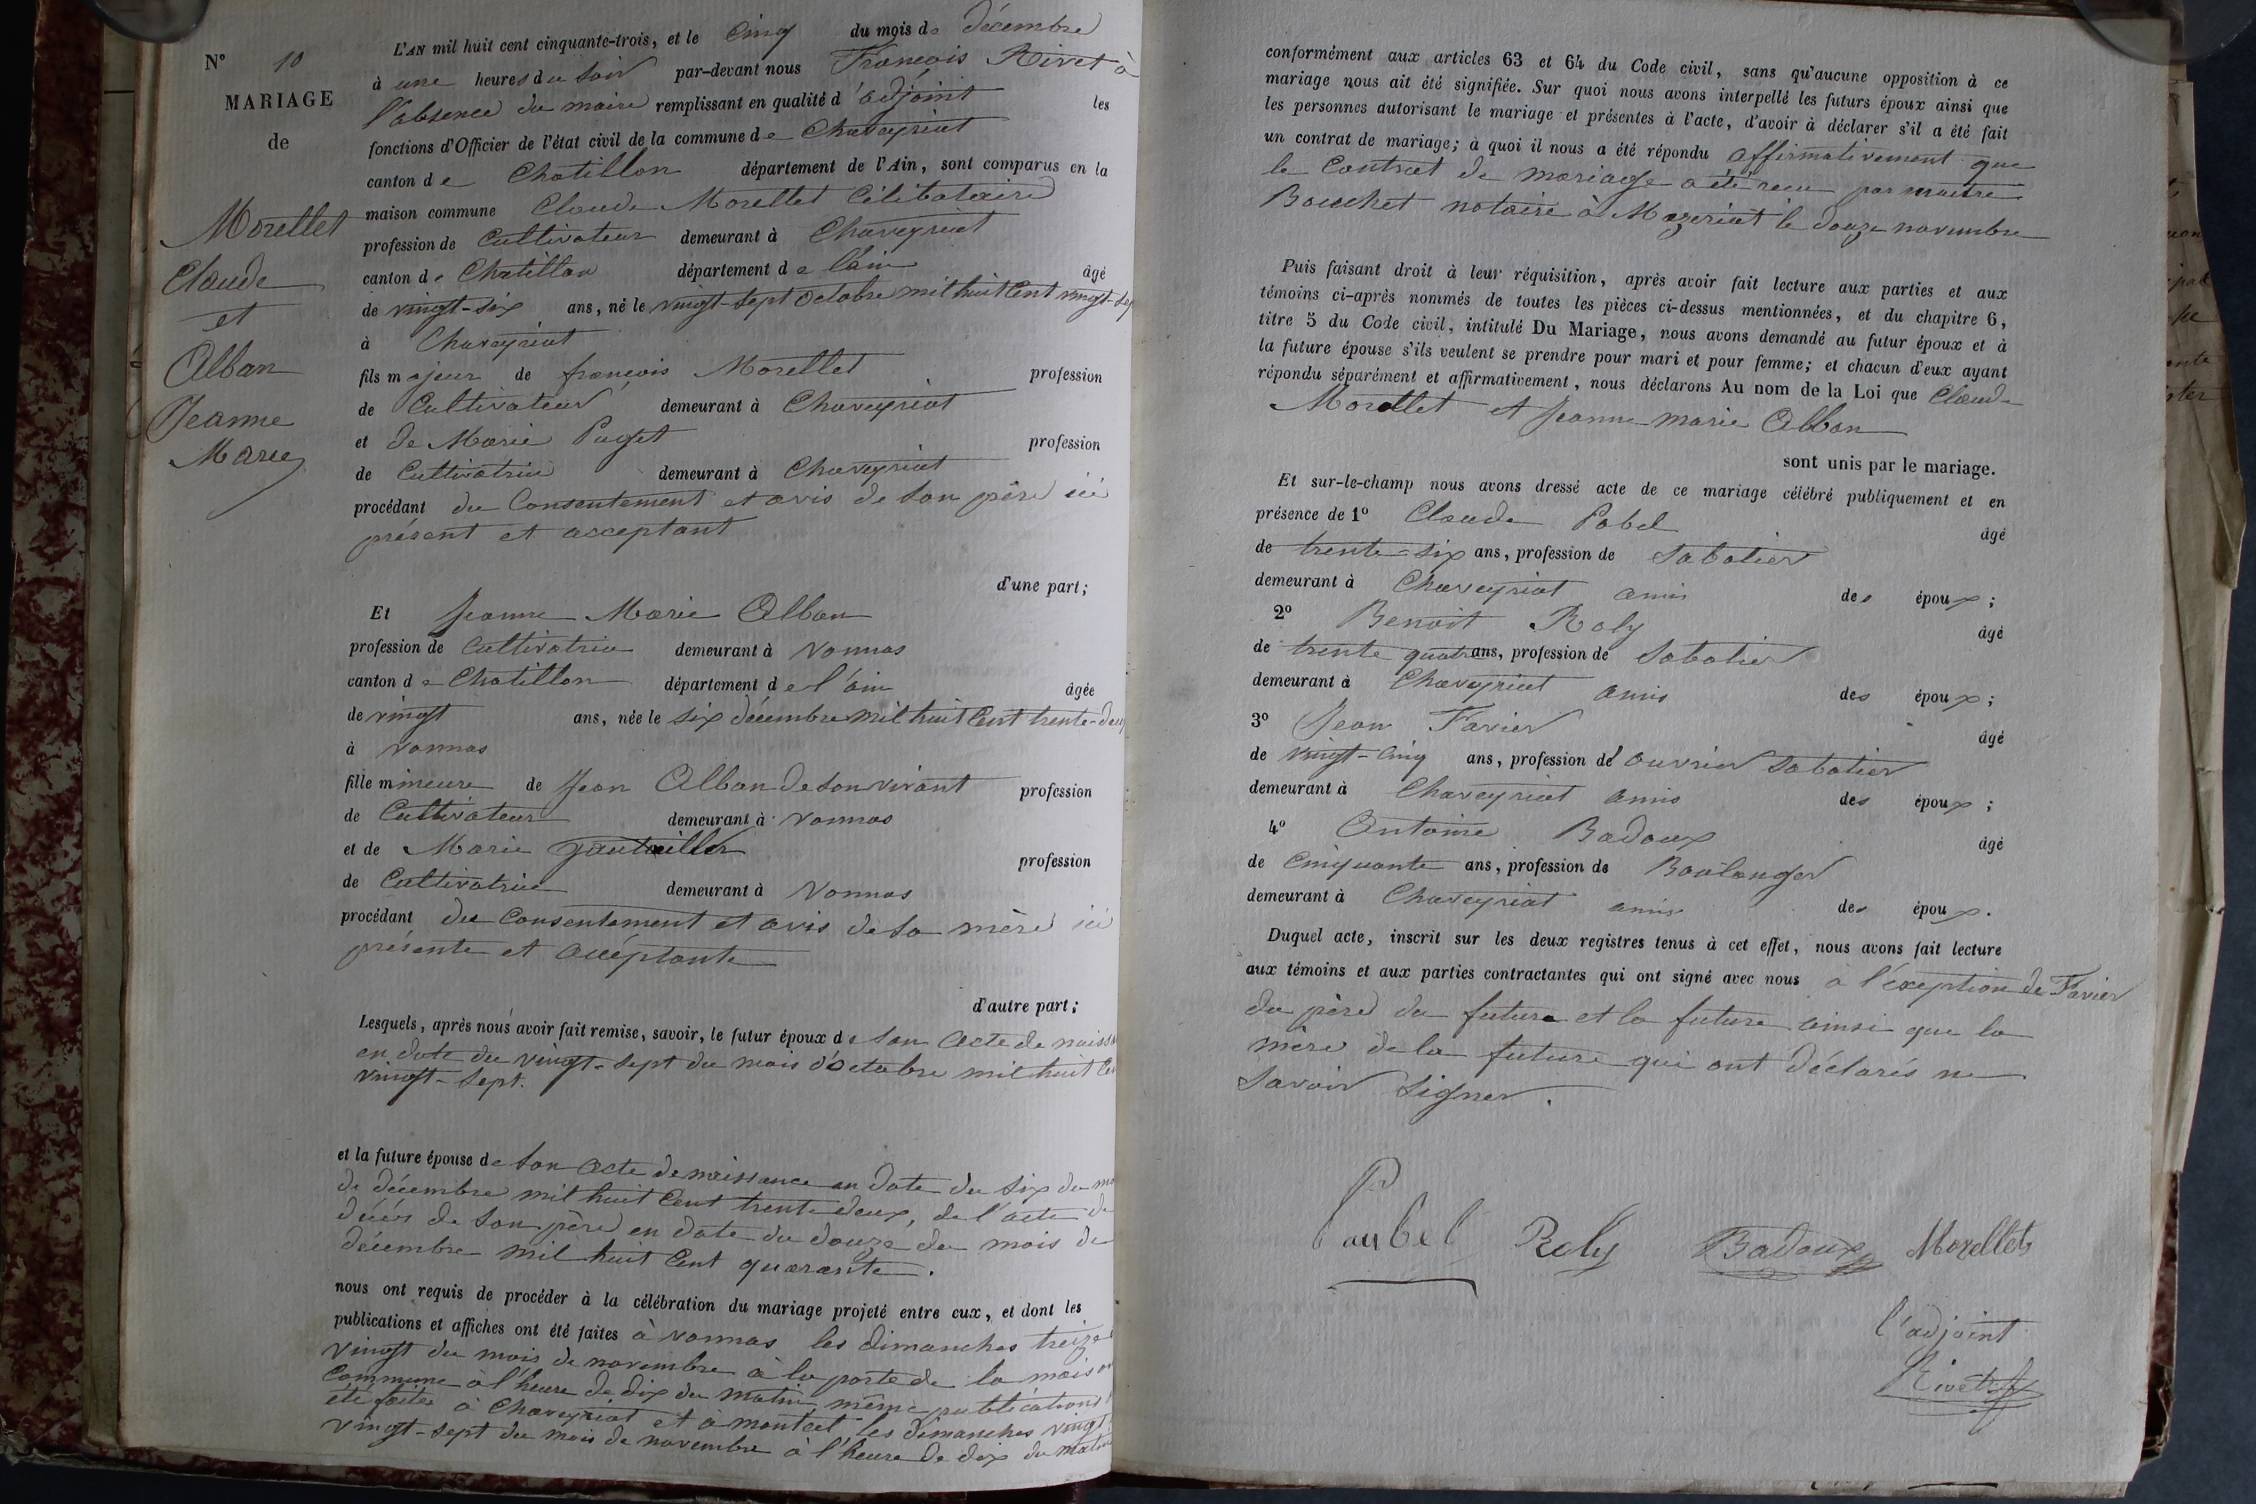 N° 10
MARIAGE
de
Morellet
Claude
et
Alban
Jeanne
Marie
L'AN mil huit cent cinquante-trois, et le cinq du mois de décembre
à une heures du soir par-devant nous François Rivet à
l'absence du maire remplissant en qualité d'adjoint les
fonctions d'Officier de l'état civil de la commune de Chaveyriat
canton de Chatillon département de l'Ain, sont comparus en la
maison commune Claude Morellet Célibataire
profession de Cultivateur demeurant à Chaveyriat
canton de Chatillon département de l'ain âgé
de vingt-six ans, né le vingt-sept octobre mil huit cent vingt-sep
à Chaveyriat
fils majeur de françois Morellet profession
de Cultivateur demeurant à Chaveyriat
et de Marie Puget profession
de Cultivatrice demeurant à Chaveyriat
procédant du Consentement et avis de son père ici
présent et acceptant
d'une part;
Et Jeanne Marie Alban
profession de Cultivatrice demeurant à Vonnas
canton de Chatillon département de l'ain âgée
de vingt ans, née le six décembre mil huit cent trente-deux
à Vonnas
fille mineure de Jean Alban de son vivant profession
de Cultivateur demeurant à Vonnas
et de Marie profession
de Cultivatrice demeurant à Vonnas
procédant du Consentement et avis de sa mère ici
présente et acceptante
d'autre part;
Lesquels, après nous avoir fait remise, savoir, le futur époux de son acte de naissa
en date du vingt-sept du mois d'octobre mil huit Cen
vingt-sept.
et la future épouse de son acte de naissance en date du six du mo
de décembre mil huit Cent trente deux, de l'acte de
décès de son père en date du douze du mois de
décembre mil huit Cent quarante.
nous ont requis de procéder à la célébration du mariage projeté entre eux, et dont les
publications et affiches ont été faites à Vonnas les dimanches treize
vingt du mois de novembre à la porte de la maison
Commune à l'heure de dix du matin, même publications
été faites à Chaveyriat et a montcet, les dimanches vingt
vingt-sept du mois de novembre à l'heure de dix du matin
conformément aux articles 63 et 64 du Code civil, sans qu'aucune opposition à ce
mariage nous ait été signifiée. Sur quoi nous avons interpellé les futurs époux ainsi que
les personnes autorisant le mariage et présentes à l'acte, d'avoir à déclarer s'il a été fait
un contrat de mariage; à quoi il nous a été répondu affirmativement que
le Contrat de mariage a été recu par maître
Bouchet notaire à Mezeriat le douze novembre
Puis faisant droit à leur réquisition, après avoir fait lecture aux parties et aux
témoins ci-après nommés de toutes les pièces ci-dessus mentionnées, et du chapitre 6,
titre 5 du Code civil, intitulé Du Mariage, nous avons demandé au futur époux et à
la future épouse s'ils veulent se prendre pour mari et pour femme; et chacun d'eux ayant
répondu séparément et affirmativement, nous déclarons Au nom de la Loi que Claude
Morellet et Jeanne marie Alban
sont unis par le mariage.
Et sur-le-champ nous avons dressé acte de ce mariage célébré publiquement et en
présence de 1° Claude Pobel âgé
de trente-six ans, profession de Sabotier
demeurant à Chaveyriat amis des époux;
2° Benoit Roly âgé
de trente quatre ans, profession de Sabotier
demeurant à Chaveyriat amis des époux;
3° Jean Favier âgé
de vingt-cinq ans, profession d'ouvrier Sabotier
demeurant à Chaveyriat amis des époux;
4° Antoine Badoux âgé
de Cinquante ans, profession de Boulanger
demeurant à Chaveyriat amis des époux.
Duquel acte, inscrit sur les deux registres tenus à cet effet, nous avons fait lecture
aux témoins et aux parties contractantes qui ont signé avec nous à l'exeption de Favier
du père du future et la future ainsi que la
mère de la future qui ont déclarés ne
savoir signer.
Paubel Roly Badoux Morellet
l'adjoint
Rivet